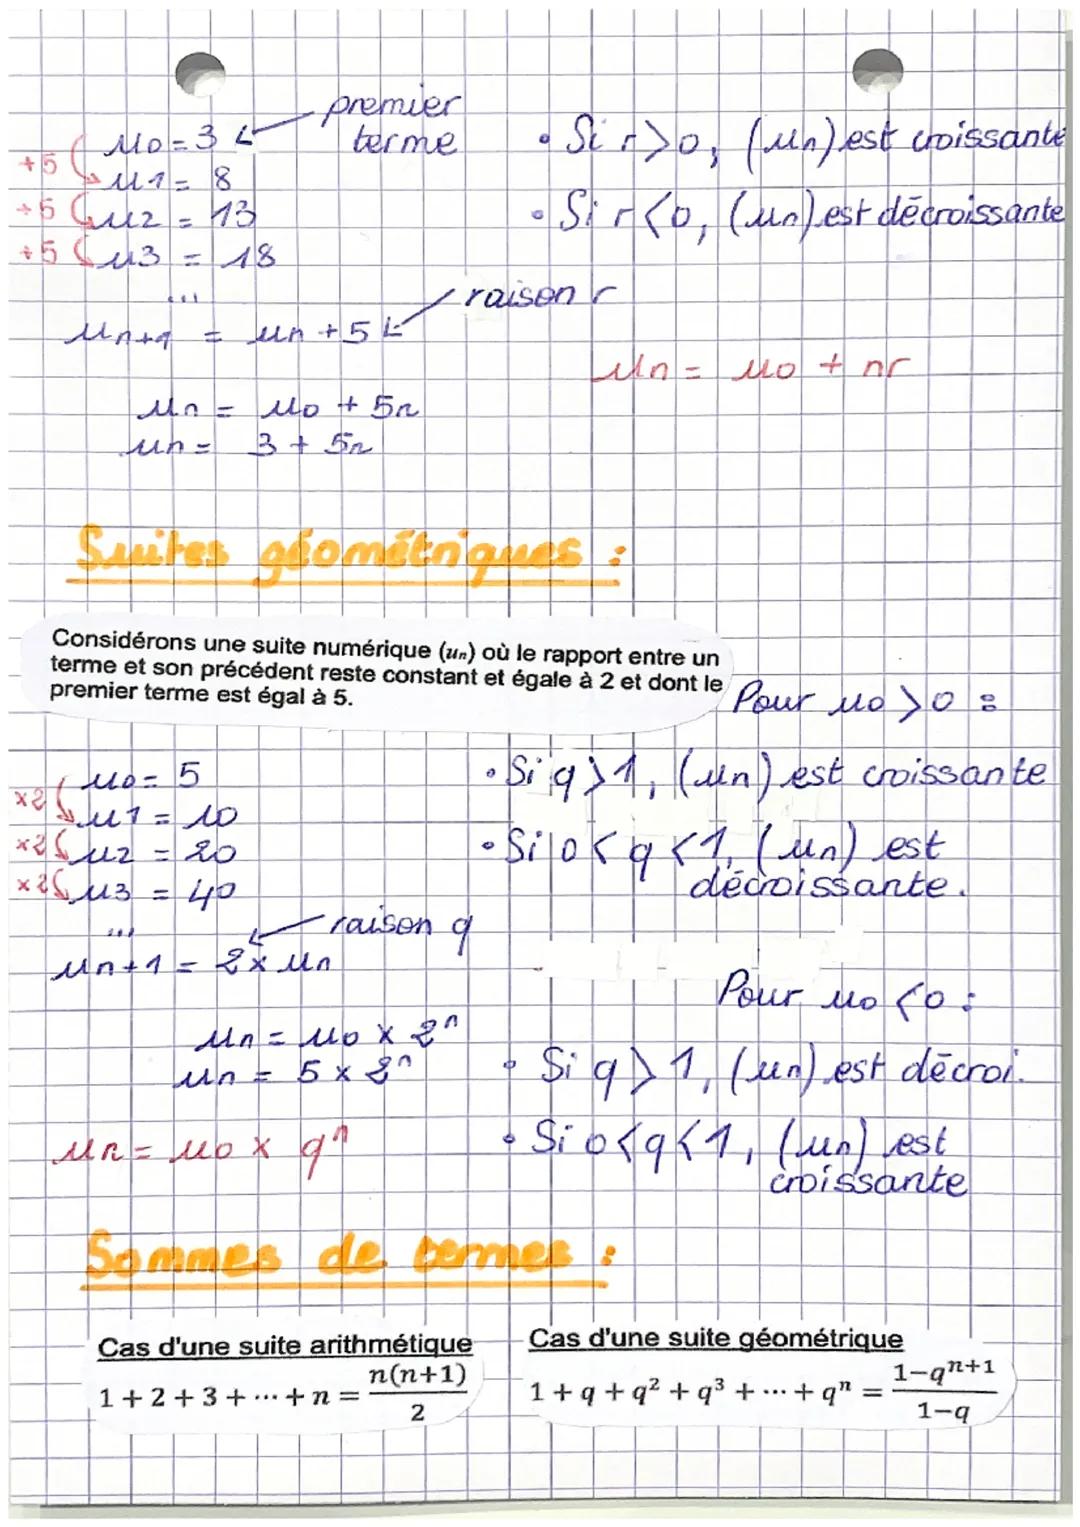 premier
terme
+5 u0 = 3
+5 u1 = 8
+5 u2 = 13
u3 = 18
...
raison r
un+1 = un + 5
un = u0 + 5n
un = 3 + 5n
• Si r > 0, (un) est croissante
• Si r < 0, (un) est décroissante
un = u0 + nr
Suites géométriques :
Considérons une suite numérique (un) où le rapport entre un
terme et son précédent reste constant et égale à 2 et dont le
premier terme est égal à 5.
×2 u0 = 5
×2 u1 = 10
×2 u2 = 20
u3 = 40
...
raison q
un+1 = 2 × un
un = u0 × 2ⁿ
un = 5 × 2ⁿ
un = u0 × qⁿ
Pour u0 > 0 :
• Si q > 1, (un) est croissante
• Si 0 < q < 1, (un) est
décroissante.
Pour u0 < 0 :
• Si q > 1, (un) est décroi.
• Si 0 < q < 1, (un) est
croissante
Sommes de termes :
Cas d'une suite arithmétique
1 + 2 + 3 + ⋯ + n = n(n+1)/2
Cas d'une suite géométrique
1 + q + q² + q³ + ⋯ + qⁿ = 1−qⁿ⁺¹/1−q